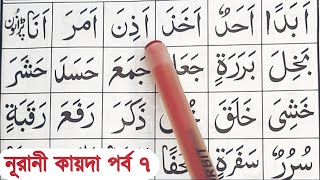 اَبَدًا اَحَدٌ اَخَذَ اَذِنَ اَمَرَ اَنَا
بَخِلَ بَرَرَةٍ جَمَعَ حَسَدَ حَشَرَ
خَشِىَ خَلَقَ ذَكَرَ رَفَعَ رَقَبَةٍ
سُرُرٌ سَفَرَةٍ
নূরানী কায়দা পর্ব ৭